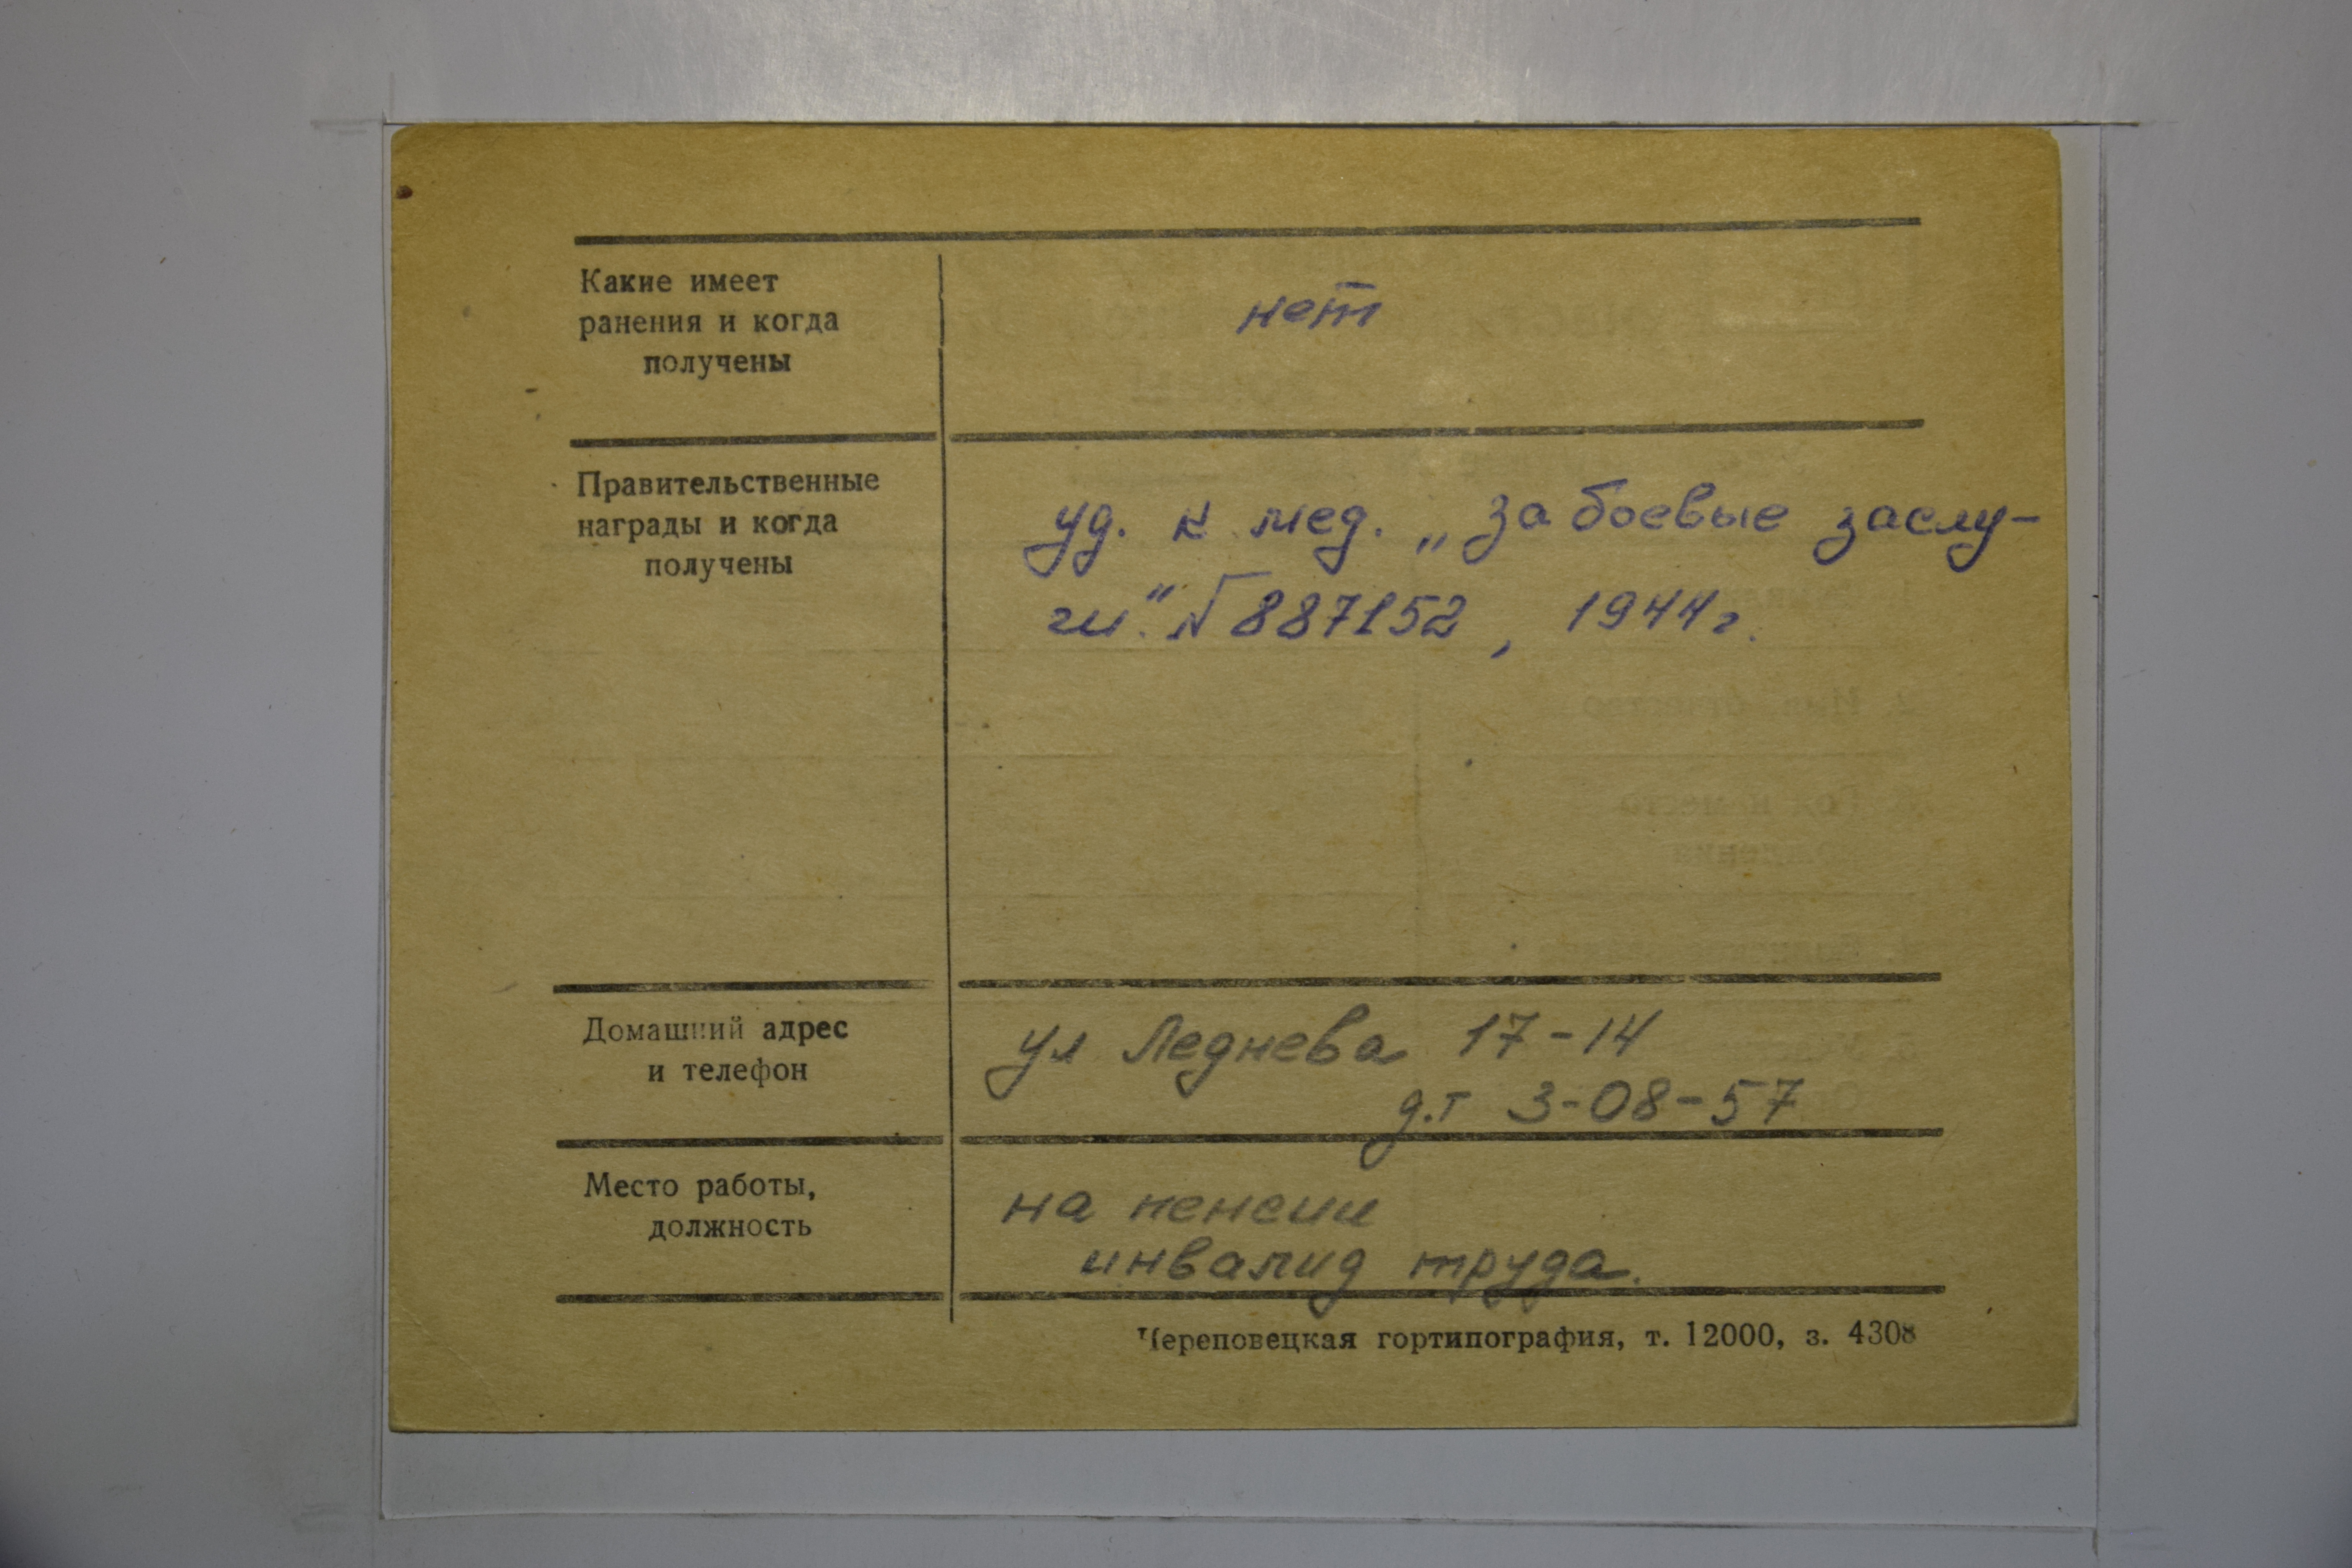 Какие имеет
ранения и когда
получены
нет
Правительственные
награды и когда
получены
уд. к мед. „За боевые заслу-
ги". № 887152, 1944 г.
Домашний адрес
и телефон
ул Леднева 17-14
д.т 3-08-57
Место работы,
должность
на пенсии
инвалид труда.
Череповецкая гортипография, т. 12000, з. 4308